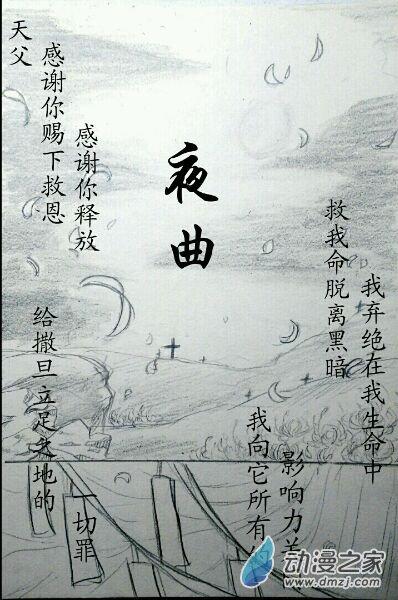 夜曲
天父
感谢你赐下救恩
感谢你释放
救我命脱离黑暗
我弃绝在我生命中
给撒旦立足之地的
一切罪
我向它所有
影响力
动漫之家
www.dmzj.com